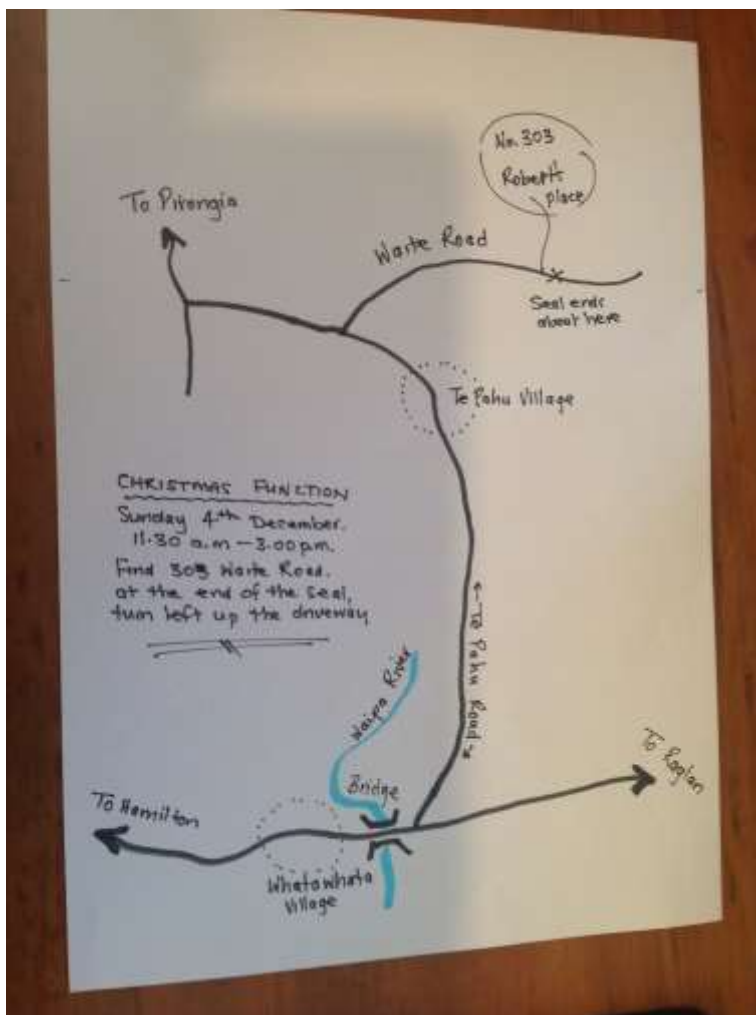 No. 303
Robert's
place
To Pirongia
Waite Road
Seal ends
about here
Te Pahu Village
CHRISTMAS FUNCTION
Sunday 4th December.
11.30 a.m – 3.00 pm.
Find 303 Waite Road.
at the end of the seal,
turn left up the driveway
← Te Pahu Road →
Waipa River
Bridge
To Raglan
To Hamilton
Whatawhata
Village